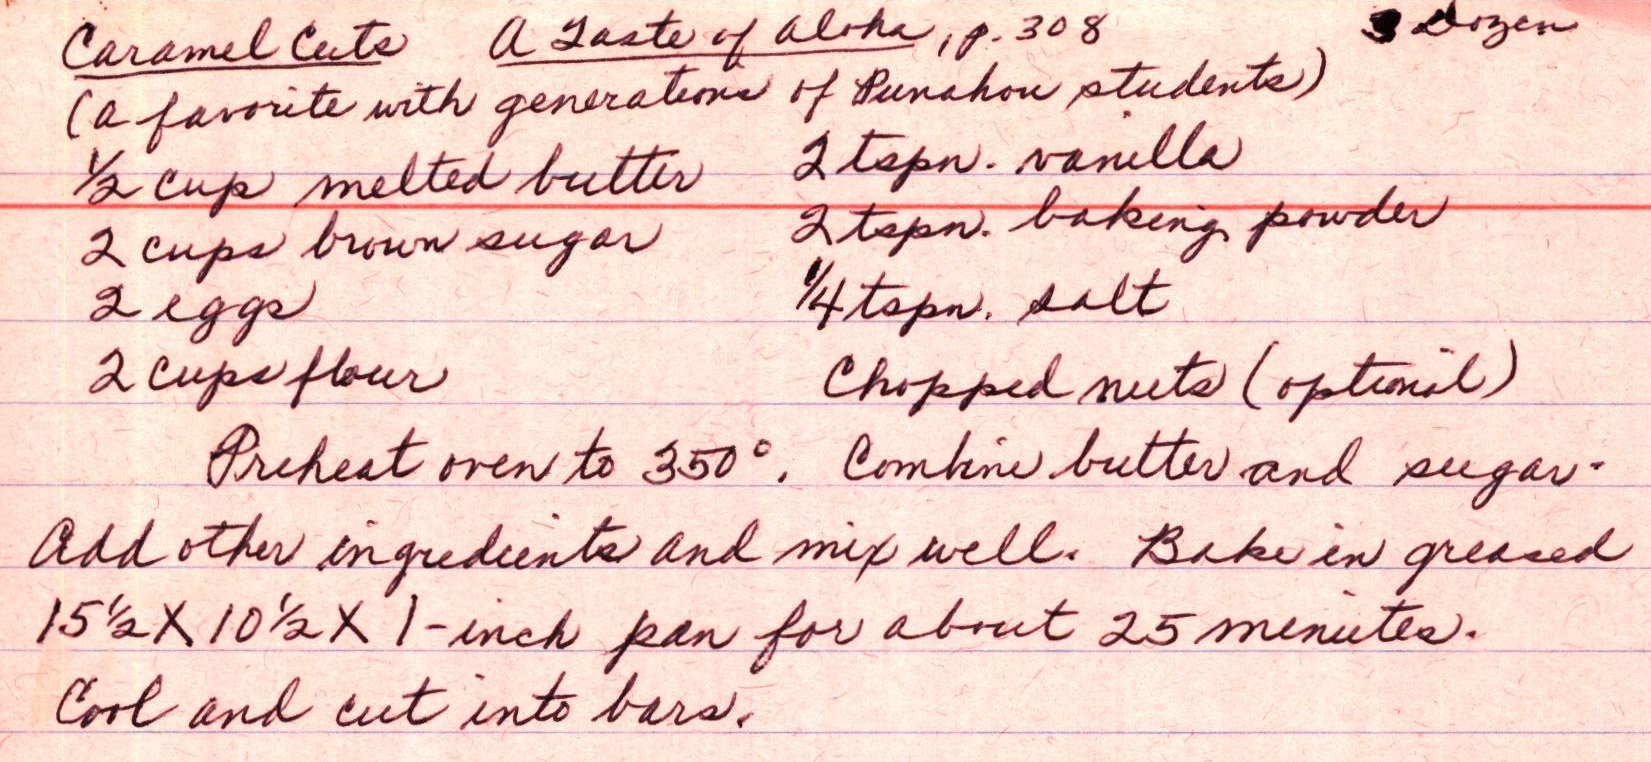 Caramel Cuts A Taste of Aloha, p. 308 3 Dozen
(a favorite with generations of Punahou students)
1/2 cup melted butter 2 tspn. vanilla
2 cups brown sugar 2 tspn. baking powder
2 eggs 1/4 tspn. salt
2 cups flour Chopped nuts (optional)
Preheat oven to 350°. Combine butter and sugar.
Add other ingredients and mix well. Bake in greased
15 1/2 X 10 1/2 X 1-inch pan for about 25 minutes.
Cool and cut into bars.